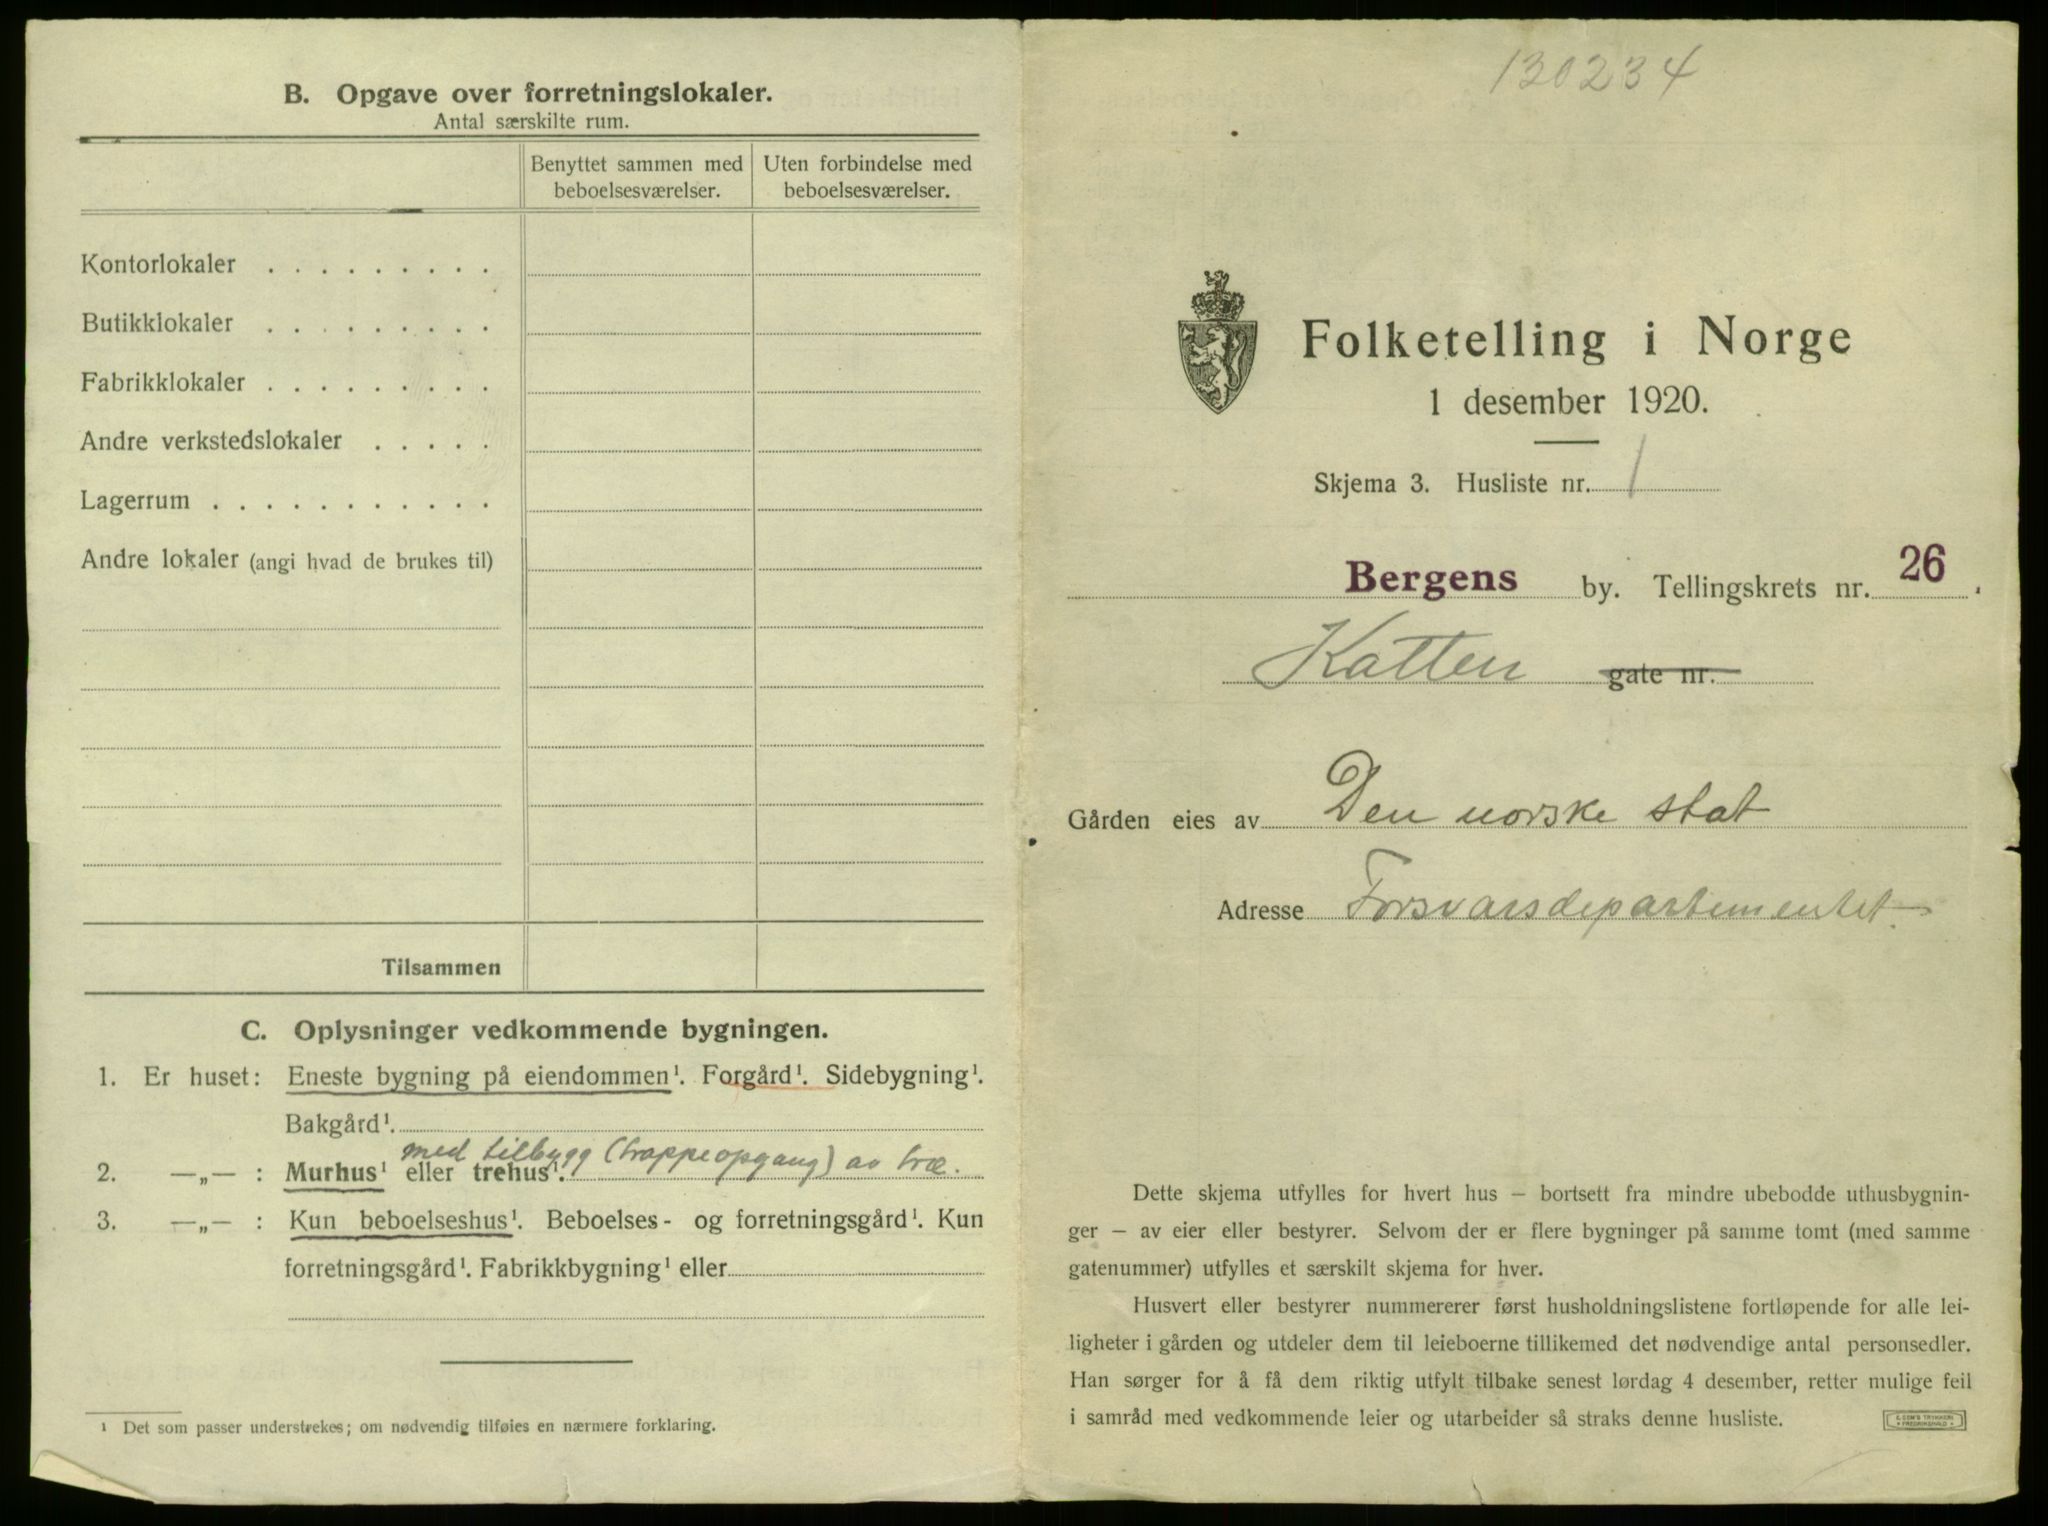 B. Opgave over forretningslokaler.
Antal særskilte rum.
Benyttet sammen med beboelsesværelser.
Uten forbindelse med beboelsesværelser.
Kontorlokaler . . . . . . . . .
Butikklokaler . . . . . . . . .
Fabrikklokaler . . . . . . . . .
Andre verkstedslokaler . . . . .
Lagerrum . . . . . . . . . . .
Andre lokaler (angi hvad de brukes til)
Tilsammen
C. Oplysninger vedkommende bygningen.
1. Er huset: Eneste bygning på eiendommen¹. Forgård¹. Sidebygning¹.
Bakgård¹.
med tilbygg (trappeopgang) av træ.
2. —„— : Murhus¹ eller trehus¹.
3. —„— : Kun beboelseshus¹. Beboelses- og forretningsgård¹. Kun
forretningsgård¹. Fabrikkbygning¹ eller
¹ Det som passer understrekes; om nødvendig tilføies en nærmere forklaring.
130234
Folketelling i Norge
1 desember 1920.
Skjema 3. Husliste nr. 1
Bergens by. Tellingskrets nr. 26
Katten gate nr.
Gården eies av Den norske stat
Adresse Forsvarsdepartementet.
Dette skjema utfylles for hvert hus – bortsett fra mindre ubebodde uthusbygnin-
ger – av eier eller bestyrer. Selvom der er flere bygninger på samme tomt (med samme
gatenummer) utfylles et særskilt skjema for hver.
Husvert eller bestyrer nummererer først husholdningslistene fortløpende for alle lei-
ligheter i gården og utdeler dem til leieboerne tillikemed det nødvendige antal personsedler.
Han sørger for å få dem riktig utfylt tilbake senest lørdag 4 desember, retter mulige feil
i samråd med vedkommende leier og utarbeider så straks denne husliste.
E. SEM'S TRYKKERI
FREDRIKSHALD